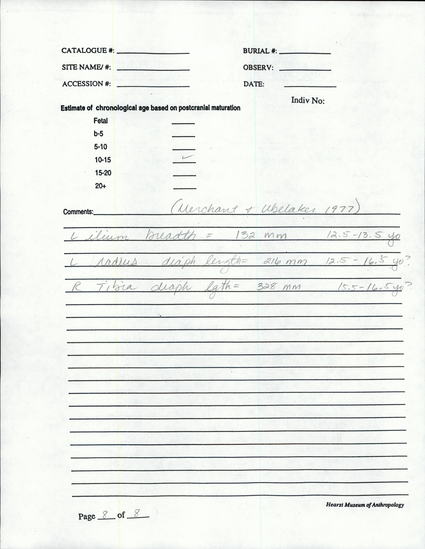 CATALOGUE #: BURIAL #:
SITE NAME/ #: OBSERV:
ACCESSION #: DATE:
Indiv No:
Estimate of chronological age based on postcranial maturation
Fetal
b-5
5-10
10-15 ✓
15-20
20+
Comments: (Merchant & Ubelaker 1977)
L ilium breadth = 132 mm 12.5-13.5 yo
L radius diaph length= 216 mm 12.5 - 16.5 yo?
R Tibia diaph lgth= 328 mm 15.5-16.5 yo?
Hearst Museum of Anthropology
Page 8 of 8